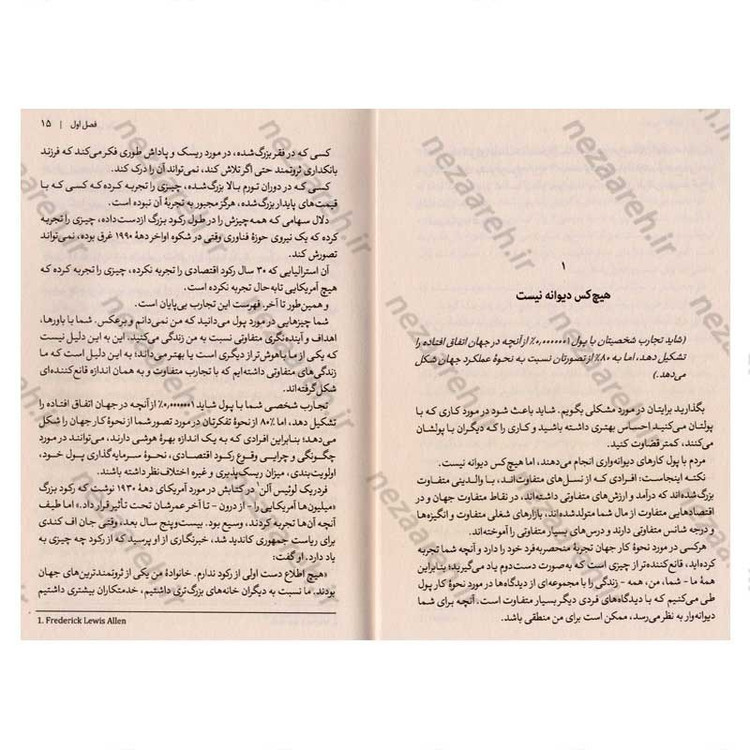 ۱
هیچ‌کس دیوانه نیست
(شاید تجارب شخصیتان با پول ۰,۰۰۰۰۰۰۰۱٪ از آنچه در جهان اتفاق افتاده را
تشکیل دهد، اما به ۸۰٪ از تصورتان نسبت به نحوهٔ عملکرد جهان شکل
می‌دهد.)
بگذارید برایتان در مورد مشکلی بگویم. شاید باعث شود در مورد کاری که با
پولتان می‌کنید احساس بهتری داشته باشید و کاری را که دیگران با پولشان
می‌کنند، کمتر قضاوت کنید.
مردم با پول کارهای دیوانه‌واری انجام می‌دهند، اما هیچ‌کس دیوانه نیست.
نکته اینجاست: افرادی که از نسل‌های متفاوت‌اند، با والدینی متفاوت
بزرگ‌شده‌اند که درآمد و ارزش‌های متفاوتی داشته‌اند، در نقاط متفاوت جهان و در
اقتصادهایی متفاوت از مال شما متولدشده‌اند، بازارهای شغلی متفاوت و انگیزه‌ها
و درجه شانس متفاوتی دارند و درس‌های بسیار متفاوتی را آموخته‌اند.
هرکسی در مورد نحوهٔ کار جهان تجربهٔ منحصربه‌فرد خود را دارد و آنچه شما تجربه
کرده‌اید، قانع‌کننده‌تر از چیزی است که به‌صورت دست‌دوم یاد می‌گیرید؛ بنابراین
همهٔ ما - شما، من، همه - زندگی را با مجموعه‌ای از دیدگاه‌ها در مورد نحوهٔ کار پول
طی می‌کنیم که با دیدگاه‌های فردی دیگر بسیار متفاوت است. آنچه برای شما
دیوانه‌وار به نظر می‌رسد، ممکن است برای من منطقی باشد.
فصل اول | ۱۵
کسی که در فقر بزرگ‌شده، در مورد ریسک و پاداش طوری فکر می‌کند که فرزند
بانکداری ثروتمند حتی اگر تلاش کند، نمی‌تواند آن را درک کند.
کسی که در دوران تورم بالا بزرگ‌شده، چیزی را تجربه کرده که کسی که با
قیمت‌های پایدار بزرگ‌شده، هرگز مجبور به تجربهٔ آن نبوده است.
دلال سهامی که همه‌چیزش را در طول رکود بزرگ ازدست‌داده، چیزی را تجربه
کرده که یک نیروی حوزهٔ فناوری وقتی در شکوه اواخر دههٔ ۱۹۹۰ غرق بوده، نمی‌تواند
تصورش کند.
آن استرالیایی که ۳۰ سال رکود اقتصادی را تجربه نکرده، چیزی را تجربه کرده که
هیچ آمریکایی تابه‌حال تجربه نکرده است.
و همین‌طور تا آخر. فهرست این تجارب بی‌پایان است.
شما چیزهایی در مورد پول می‌دانید که من نمی‌دانم و برعکس. شما با باورها،
اهداف و آینده‌نگری متفاوتی نسبت به من زندگی می‌کنید. این به این دلیل نیست
که یکی از ما باهوش‌تر از دیگری است یا بهتر می‌داند؛ به این دلیل است که ما
زندگی‌های متفاوتی داشته‌ایم که با تجارب متفاوت و به همان اندازه قانع‌کننده‌ای
شکل‌گرفته‌اند.
تجارب شخصی شما با پول شاید ۰,۰۰۰۰۰۰۰۱٪ از آنچه در جهان اتفاق افتاده را
تشکیل دهد، اما ۸۰٪ از نحوهٔ تفکرتان در مورد تصور شما از نحوهٔ کار جهان را شکل
می‌دهد؛ بنابراین افرادی که به یک اندازه بهرهٔ هوشی دارند، می‌توانند در مورد
چگونگی و چرایی وقوع رکودهای اقتصادی، نحوهٔ سرمایه‌گذاری پول خود،
اولویت‌بندی، میزان ریسک‌پذیری و غیره اختلاف‌نظر داشته باشند.
فردریک لوئیس آلن¹ در کتابش در مورد آمریکای دههٔ ۱۹۳۰ نوشت که رکود بزرگ
«میلیون‌ها آمریکایی را - از درون - تا آخر عمرشان تحت تأثیر قرار داد.» اما طیف
آنچه آن‌ها تجربه کردند، وسیع بود. بیست‌وپنج سال بعد، وقتی جان اف کندی
برای ریاست جمهوری کاندید شد، خبرنگاری از او پرسید که از رکود چه چیزی به
یاد دارد. او گفت:
«هیچ اطلاع دست اولی از رکود ندارم. خانوادهٔ من یکی از ثروتمندترین‌های جهان
بودند. ما نسبت به دیگران خانه‌های بزرگ‌تری داشتیم، خدمتکاران بیشتری داشتیم
1. Frederick Lewis Allen
nezaareh.ir